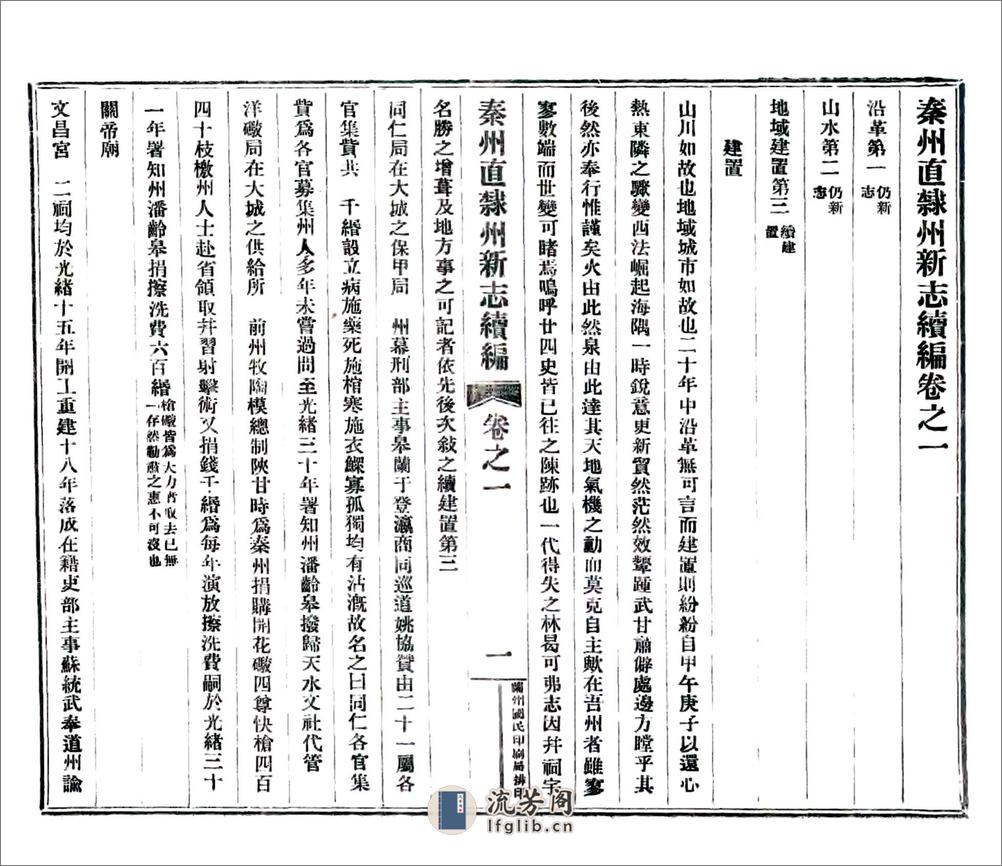 秦州直隸州新志續編卷之一
沿革第一 仍新志
山水第二 仍新志
地域建置第三 續建置
建置
山川如故也地域城市如故也二十年中沿革無可言而建置則紛紛自甲午庚子以還心
熱東隣之驟變西法崛起海隅一時銳意更新貿然茫然效顰踵武甘肅僻處邊方瞠乎其
後然亦奉行惟謹矣火由此然泉由此達其天地氣機之動而莫克自主歟在吾州者雖寥
寥數端而世變可睹焉嗚呼廿四史皆已往之陳跡也一代得失之林曷可弗志因幷祠宇
名勝之增葺及地方事之可記者依先後次敍之續建置第三
秦州直隸州新志續編 卷之一 一
蘭州國民印刷局排印
同仁局在大城之保甲局 州幕刑部主事皋蘭于登瀛商同巡道姚協贊由二十一屬各
官集貲共 千緡設立病施藥死施棺寒施衣鰥寡孤獨均有沾溉故名之曰同仁各官集
貲爲各官募集州人多年未嘗過問至光緒三十年署知州潘齡皋撥歸天水文社代管
洋礮局在大城之供給所 前州牧陶模總制陝甘時爲秦州捐購開花礮四尊快槍四百
四十枝檄州人士赴省領取幷習射擊術又捐錢千緡爲每年演放擦洗費嗣於光緒三十
一年署知州潘齡皋捐擦洗費六百緡 槍礮皆爲大力者取去已無一存然勸
之惠不可沒也
關帝廟
文昌宮 二祠均於光緒十五年開工重建十八年落成在籍吏部主事蘇統武奉道州諭
流芳阁
lfglib.cn